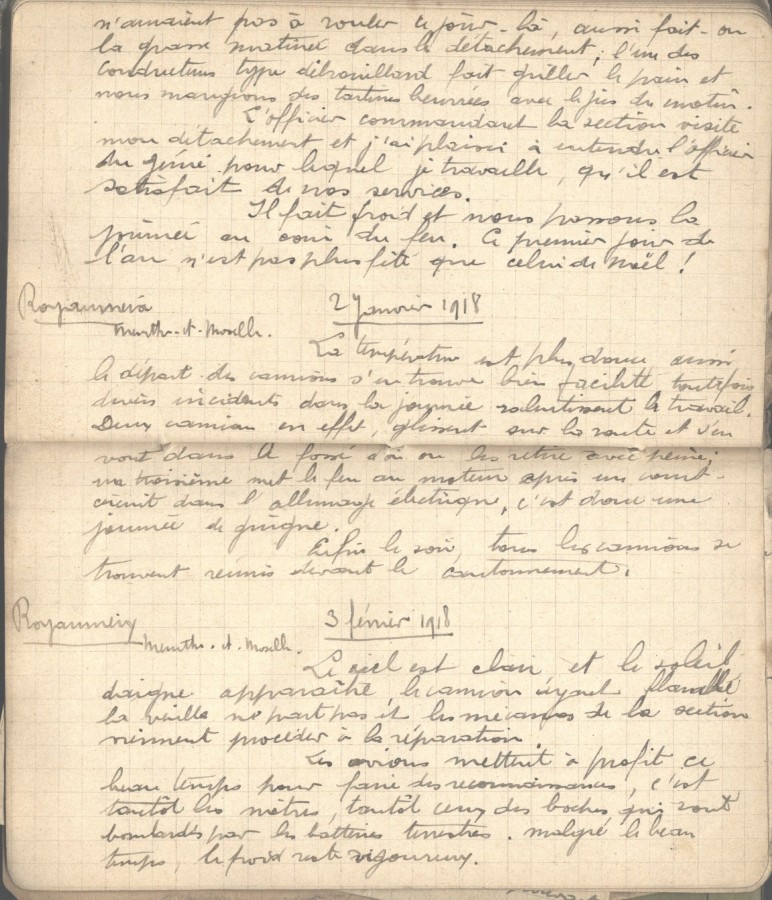 n'auraient pas à rouler ce jour-là, aussi fait-on
la grasse matinée dans le détachement; l'un des
conducteurs type débrouillard fait griller le pain et
nous mangeons des tartines beurrées avec le jus du matin.
L'officier commandant la section visite
mon détachement et j'ai plaisir à entendre l'officier
du génie pour lequel je travaille, qu'il est
satisfait de nos services.
Il fait froid et nous passons la
journée au coin du feu. Ce premier jour de
l'an n'est pas plus fêté que celui de Noël!
Royaumeix 2 Janvier 1918
Meurthe-et-Moselle.
La température est plus douce aussi
le départ des camions s'en trouve bien facilité toutefois
divers incidents dans la journée ralentissent le travail.
Deux camions en effet, glissent sur la route et s'en
vont dans le fossé d'où on les retire avec peine;
un troisième met le feu au moteur après un court-
circuit dans l'allumage électrique, c'est donc une
journée de guigne.
Enfin le soir, tous les camions se
trouvent réunis devant le cantonnement.
Royaumeix 3 février 1918
Meurthe-et-Moselle.
Le ciel est clair et le soleil
daigne apparaître, le camion ayant flambé
la veille ne part pas et les mécanos de la section
viennent procéder à la réparation.
Les avions mettent à profit ce
beau temps pour faire des reconnaissances, c'est
tantôt les nôtres, tantôt ceux des boches qui sont
bombardés par les batteries terrestres. malgré le beau
temps, le froid reste vigoureux.